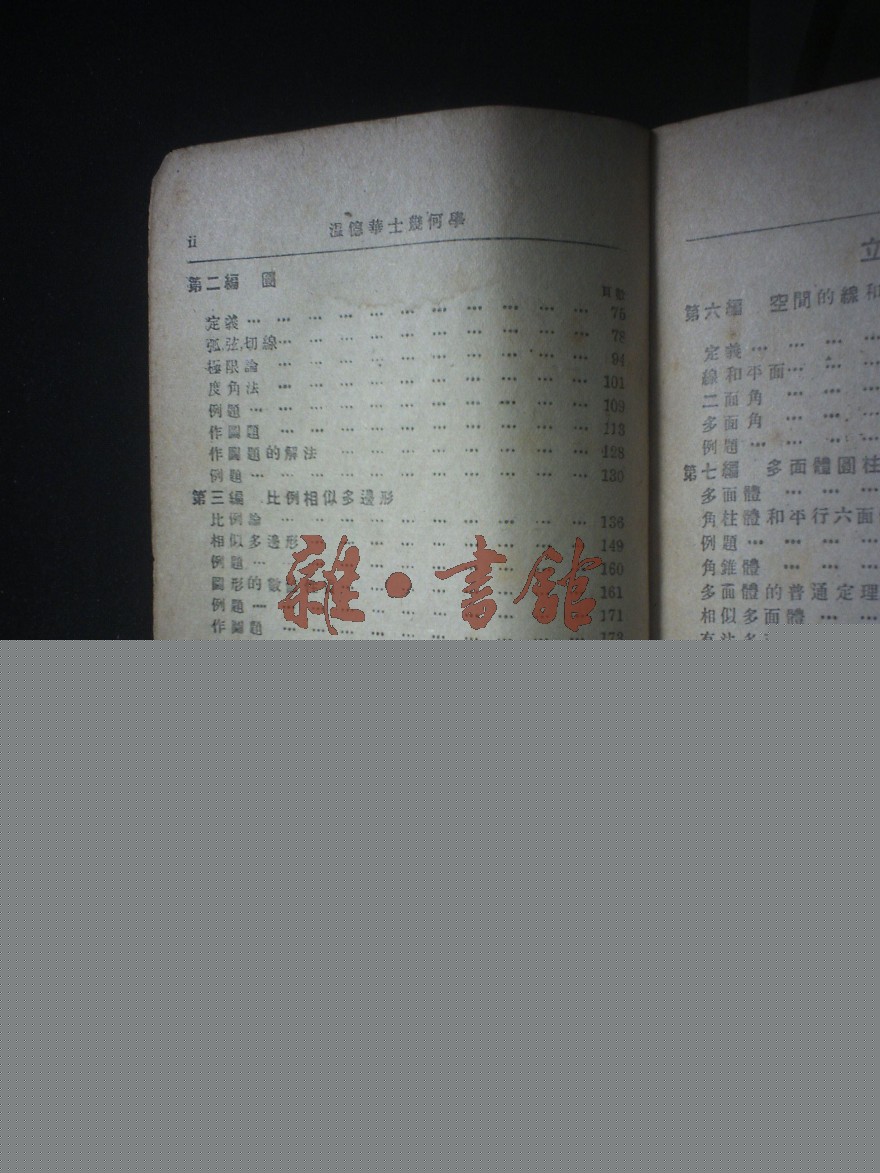 ii
溫德華士幾何學
第二編 圓
頁數
定義 … … … … … … … … … … … … 75
弧,弦,切線 … … … … … … … … … … … 78
極限論 … … … … … … … … … … … 94
度角法 … … … … … … … … … … … 101
例題 … … … … … … … … … … … … 109
作圖題 … … … … … … … … … … … 113
作圖題的解法 … … … … … … … … … 128
例題 … … … … … … … … … … … … 130
第三編 比例相似多邊形
比例論 … … … … … … … … … … … 136
相似多邊形 … … … … … … … … … … 149
例題 … … … … … … … … … … … … 160
圖形的數 … … … … … … … … 161
例題 … … … … … … … … … … … … 171
作圖題 … … … … … … … … … … … 173
雜·書館
立
第六編 空間的線和
定義 … … … …
線和平面 … … …
二面角 … … …
多面角 … … …
例題 … … … …
第七編 多面體圓柱
多面體 … … …
角柱體和平行六面
例題 … … … …
角錐體 … … …
多面體的普通定理
相似多面體 … …